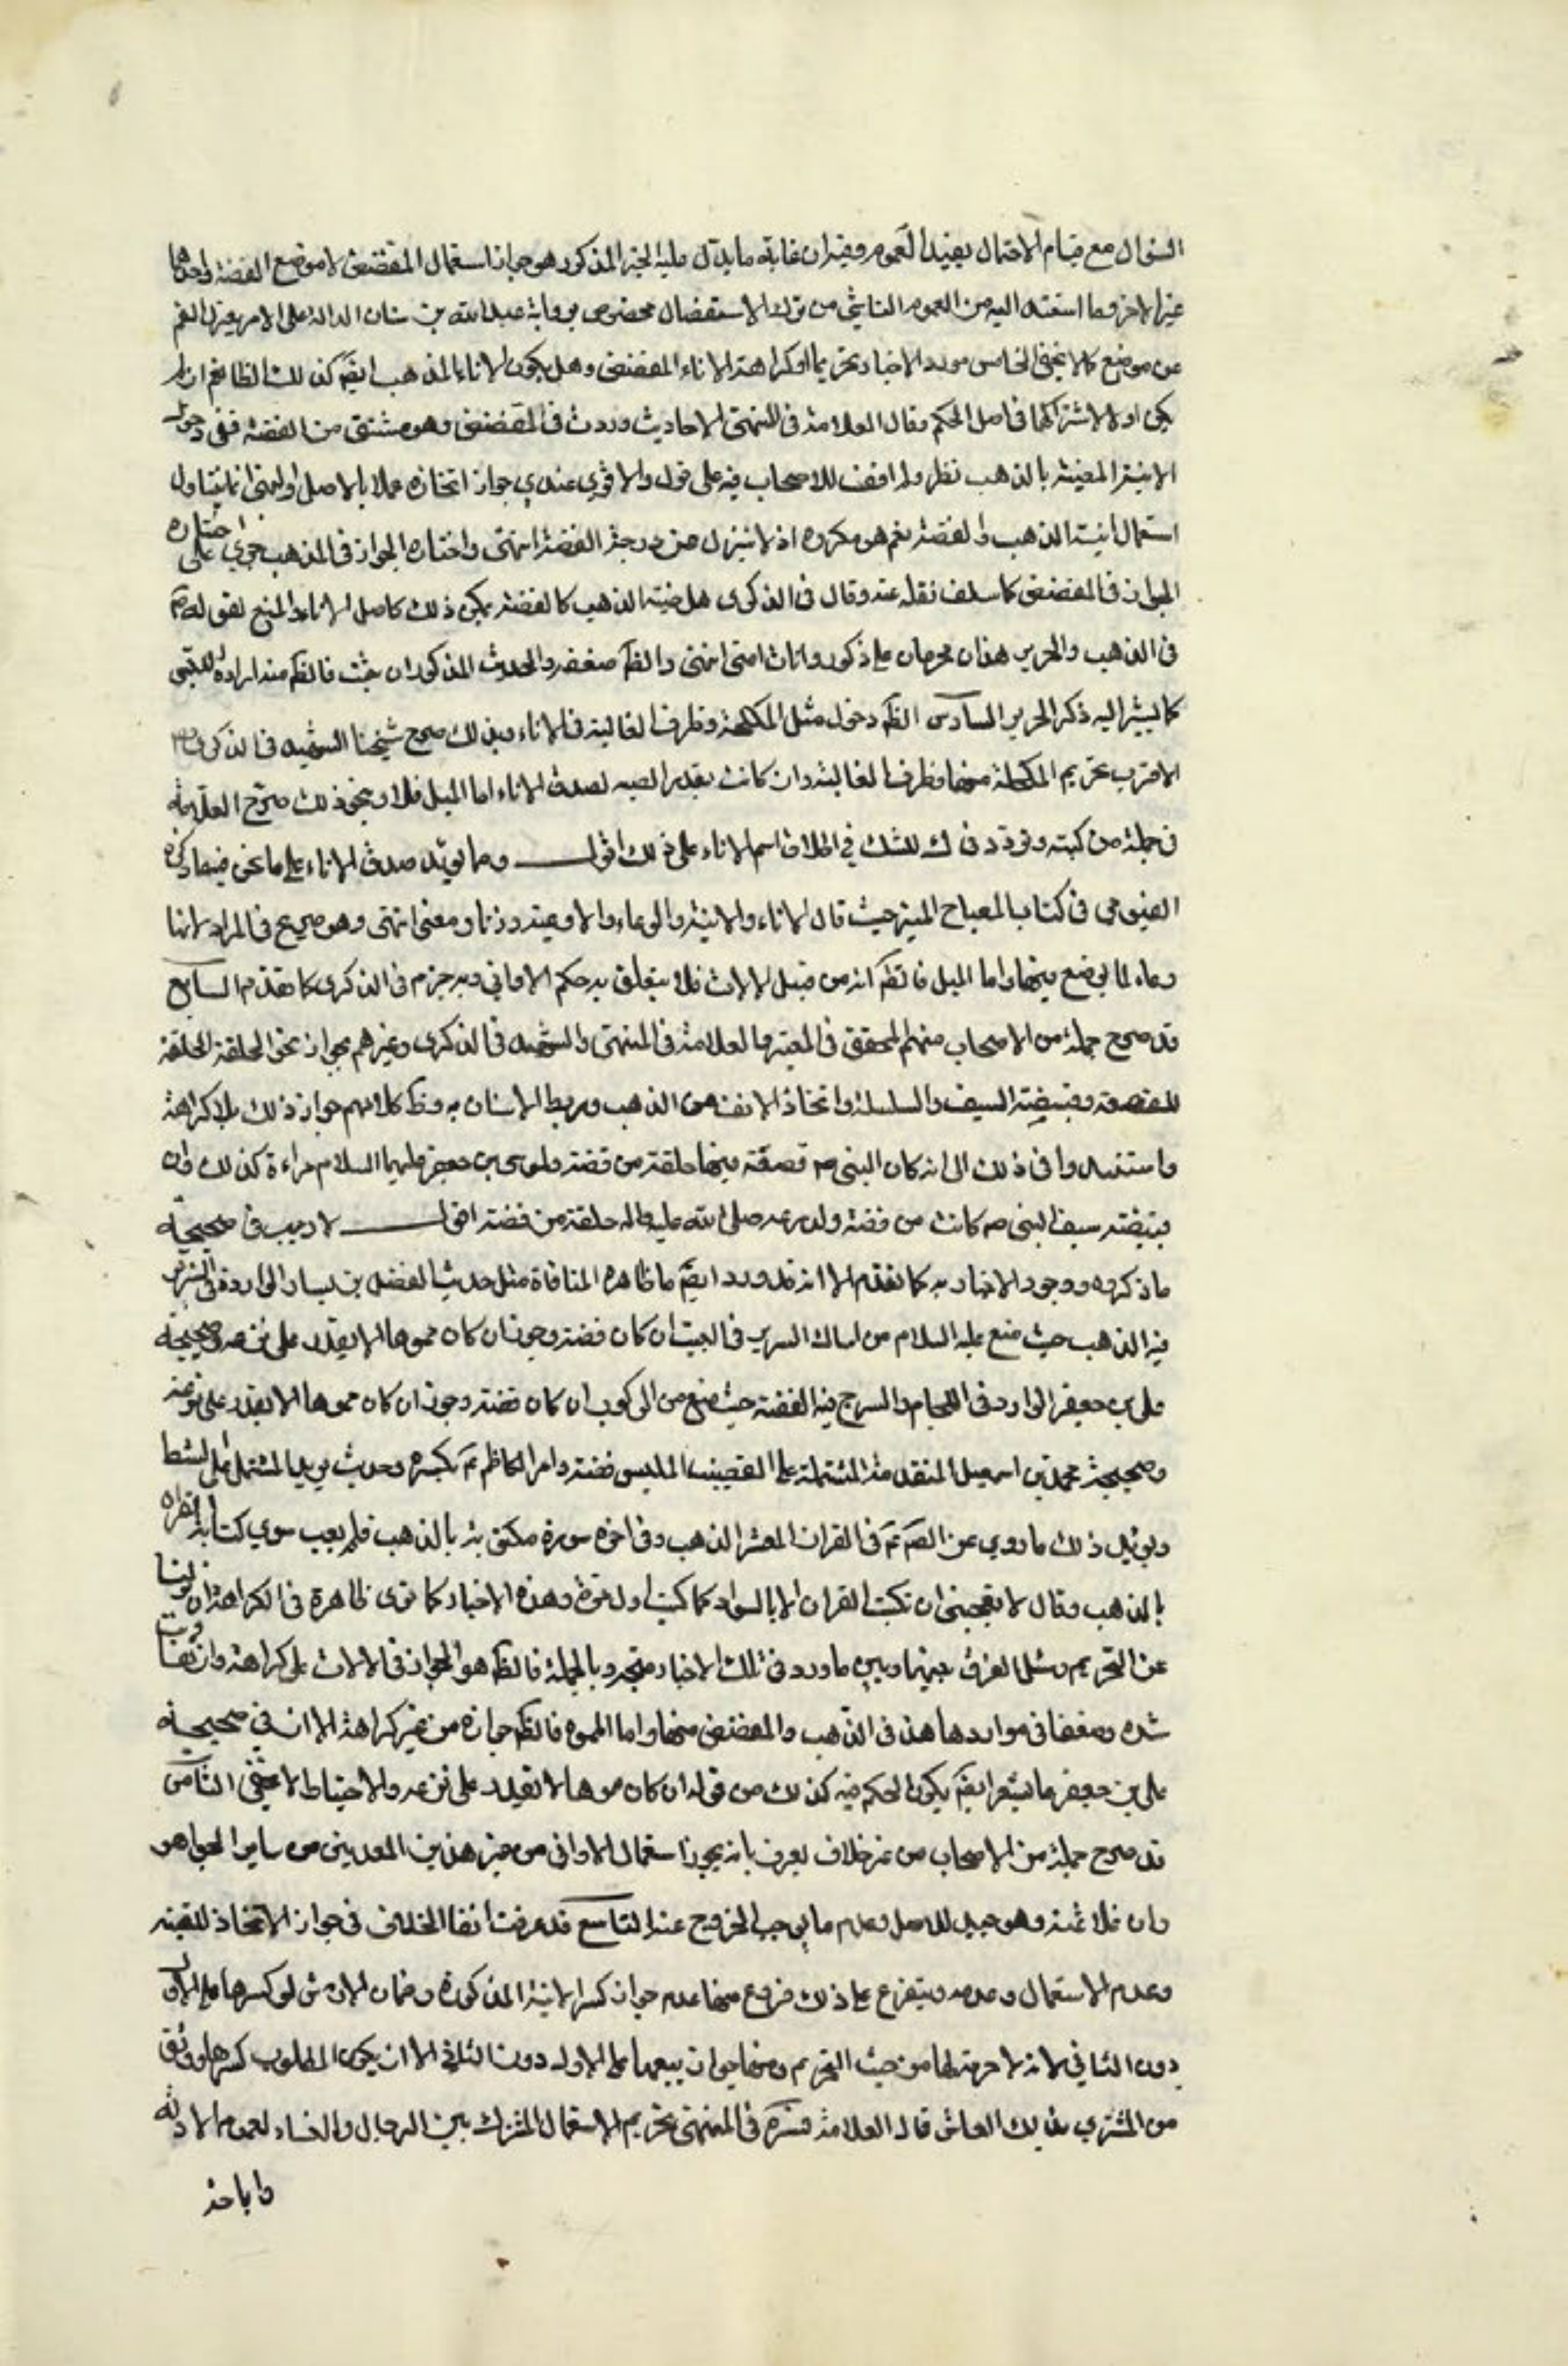 السؤال مع قيام الاحتمال يفيد العموم وفيه ان غاية ما يدل عليه الخبر المذكور هو جواز استعمال المفضض لا موضع الفضة واحدهما
غير الاخر وما استند اليه من العموم الناشي من ترك الاستفصال مخصوص برواية عبد الله بن سنان الدالة على الامر بعزل الفم
عن موضع كما لا يخفى الخامس مورد الاخبار تحريما او كراهة الاناء المفضض وهل يكون الاناء المذهب ايضَ كذلك الظا نعم ان لم
يكن اولى لاشتراكهما في اصل الحكم وقال العلامة في المنتهى الاحاديث وردت في المفضض وهو مشتق من الفضة ففي دخول
الانية المضببة بالذهب نظر ولم اقف للاصحاب فيه على قول والاقوى عندي جواز اتخاذه عملا بالاصل والنهي انما يتناول
استعمال انية الذهب والفضة نعم هو مكروه اذ لا ينزل عن درجة الفضة انتهى واختاره الجواز في المذهب جرى على اختياره
الجواز في المفضض كما سلف نقله عنه وقال في الذكرى هل ضبة الذهب كالفضة يمكن ذلك كاصل الاناء والمنع لقوله صَ
في الذهب والحرير هذان محرمان على ذكور وانات امتي انتهى والظَ ضعفه والحديث المذكور ان ثبت فالظَ منه ارادة اللبس
كما يشير اليه ذكر الحرير السادس الظَ دخول مثل المكحلة وظرف الغالية في الاناء وبذلك صرح شيخنا الشهيد في الذكرى فقال
الاقرب تحريم المكحلة منها وظرف الغالية وان كانت بقدر الضبة لصدق الاناء اما الميل فلا وبنحو ذلك صرح العلامة
في جملة من كتبه وتردد في ك للشك في اطلاق اسم الاناء على ذلك اقول ومما يؤيد صدق الاناء على ما نحن فيه ما ذكره
الفيومي في كتاب المصباح المنير حيث قال الاناء والانية والوعاء والاوعية وزنا ومعنى انتهى وهو صريح في المراد لانها
وعاء لما يوضع فيها واما الميل فالظَ انه من قبيل الالات فلا يتعلق به حكم الاواني وبه جزم في الذكرى كما تقدم السابع
قد صرح جملة من الاصحاب منهم المحقق في المعتبر والعلامة في المنتهى والشهيد في الذكرى وغيرهم بجواز نحو الحلقة الحلقة
للقصعة وقبيعة السيف والسلسلة واتخاذ الانف من الذهب وربط الاسنان به وظَ كلامهم جواز ذلك بلا كراهة
واستندوا في ذلك الى انه كان للنبي صَ قصعة فيها حلقة من فضة ولموسى بن جعفر عليهما السلام مراءة كذلك وان
قبيعة سيف النبي صَ كانت من فضة ولدرعه صلى الله عليه واله حلقة من فضة اقول لا ريب في صحيحة
ما ذكروه ووجود الاخبار به كما تقدم الا انه قد ورد ايضَ ما ظاهره المنافاة مثل حديث الفضل بن يسار الواردة في السرير
فيه الذهب حيث منع عليه السلام من امساك السرير في البيت ان كان فضة وجوز ان كان مموها لا يقدر على نزعه وصحيحة
علي بن جعفر الوارد في اللجام والسرج فيه الفضة حيث منع من الركوب ان كان فضة وجوز ان كان مموها لا يقدر على نزعه
وصحيحة محمد بن اسمعيل المتقدمة المشتملة على القضيب الملبس فضة وامر الكاظم عَ بكسره وحديث بريد المشتمل على المشط
ويؤيد ذلك ما روي عن الصَ عَ في القران المعشر بالذهب وفي اخره سورة مكتوبة بالذهب فلم يعب سوى كتابة القران
بالذهب وقال لا يعجبني ان يكتب القران الا بالسواد كما كتب اول مرة وهذه الاخبار كما ترى ظاهرة في الكراهة ان نزلنا
عن التحريم ومثل الفرق بينها وبين ما ورد في تلك الاخبار متجه وبالجملة فالظَ هو الجواز في الالات على كراهة وان تفاوتت
شدة وضعفا في مواردها هذا في الذهب والمفضض منها واما المموه فالظَ جوازه من غير كراهة الا ان في صحيحة
علي بن جعفر ما يشعر ايضَ بكون الحكم فيه كذلك من قوله ان كان مموها لا يقدر على نزعه والاحتياط لا يخفى الثامن
قد صرح جملة من الاصحاب من غير خلاف يعرف بانه يجوز استعمال الاواني من غير هذين المعدنين من ساير الجواهر
وان غلا ثمنه وهو جيد للاصل وعدم ما يوجب الخروج عنه التاسع قد عرفت انفا الخلاف في جواز الاتخاذ للقنية
وعدم الاستعمال وعدمه ويتفرع على ذلك فروع منها عدم جواز كسر الانية المذكورة وضمان الارش لو كسرها على الاول
دون الثاني لانه لا حرمة لها من حيث التحريم ومنها جواز بيعها على الاول دون الثاني الا ان يكون المطلوب كسرها ووثق
من المشتري بذلك العاشر قال العلامة قسَره في المنتهى تحريم الاستعمال مشترك بين الرجال والنساء لعموم الادلة
واباحة